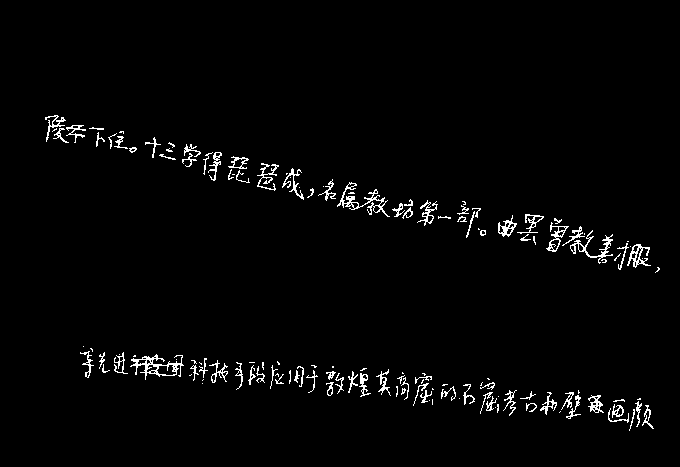 陵下住。十三学得琵琶成，名属教坊第一部。曲罢曾教善服，
等先进科技手段应用于敦煌莫高窟的石窟考古和壁画颜